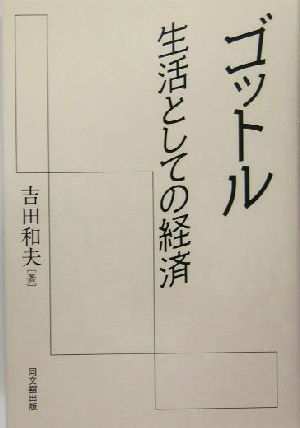 ゴットル
生活としての経済
吉田和夫［著］
同文舘出版